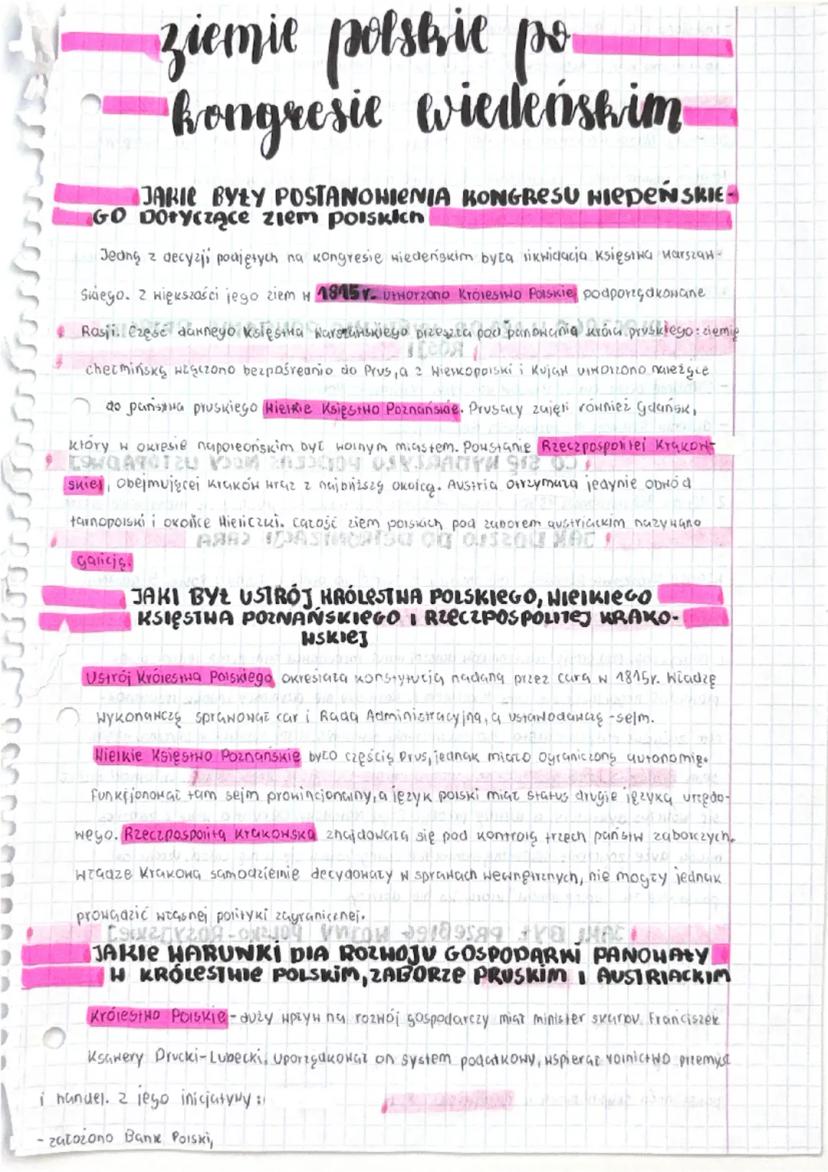 ziemie polskie po
kongresie wiedeńskim
JAKIE BYŁY POSTANOWIENIA KONGRESU WIEDEŃSKIE-
GO DOTYCZĄCE ZIEM POLSKICH
Jedną z decyzji podjętych na kongresie wiedeńskim była likwidacja Księstwa Warszaw-
skiego. Z większości jego ziem w 1815 r. utworzono Królestwo Polskie, podporządkowane
Rosji. Część dawnego Księstwa Warszawskiego przeszła pod panowanią króla pruskiego: ziemię
chełmińską włączono bezpośrednio do Prus, a z Wielkopolski i Kujaw utworzono należące
do państwa pruskiego Wielkie Księstwo Poznańskie. Prusacy zajęli również Gdańsk,
który w okresie napoleońskim był wolnym miastem. Powstanie Rzeczpospolitej Krakow-
skiej, obejmującej Kraków wraz z najbliższą okolicą. Austria otrzymała jedynie obwód
tarnopolski i okolice Wieliczki. Całość ziem polskich pod zaborem austriackim nazywano
Galicją.
JAKI BYŁ USTRÓJ KRÓLESTWA POLSKIEGO, WIELKIEGO
KSIĘSTWA POZNAŃSKIEGO I RZECZPOSPOLITEJ KRAKO-
WSKIEJ
Ustrój Królestwa Polskiego określała konstytucją nadaną przez cara w 1815r. Władzę
wykonawczą sprawował car i Rada Administracyjna, a ustawodawczą - sejm.
Wielkie Księstwo Poznańskie było częścią Prus, jednak miało ograniczoną autonomię.
Funkcjonował tam sejm prowincjonalny, a język polski miał status drugie języka urzędo-
wego. Rzeczpospolita Krakowska znajdowała się pod kontrolą trzech państw zaborczych.
Władze Krakowa samodzielnie decydowały w sprawach wewnętrznych, nie mogły jednak
prowadzić własnej polityki zagranicznej.
JAKIE WARUNKI DLA ROZWOJU GOSPODARKI PANOWAŁY
W KRÓLESTWIE POLSKIM, ZABORZE PRUSKIM I AUSTRIACKIM
Królestwo Polskie - duży wpływ na rozwój gospodarczy miał minister skarbu Franciszek
Ksawery Drucki-Lubecki, uporządkował on system podatkowy, wspierał rolnictwo przemysł
i handel. Z jego inicjatywy:
- założono Bank Polski,